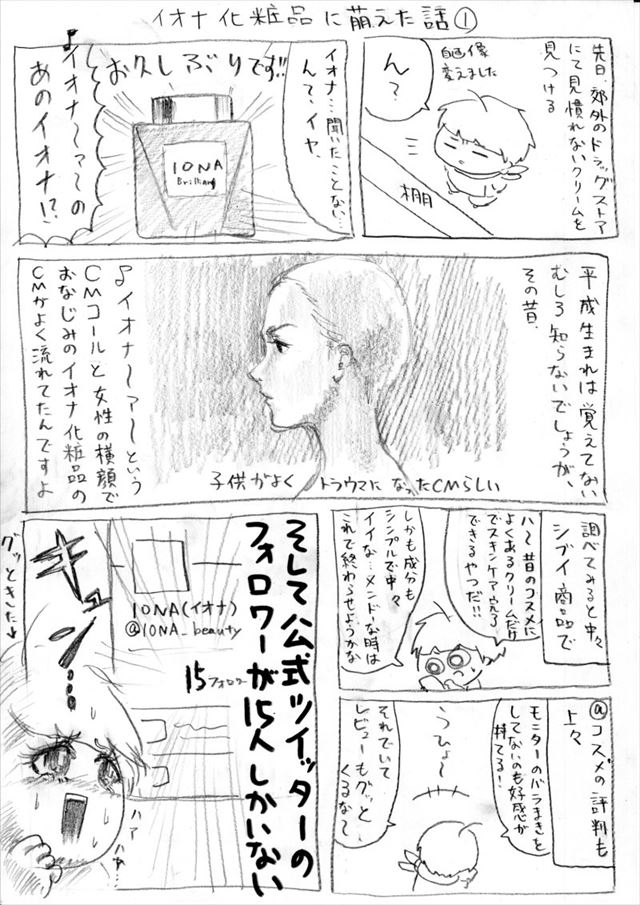 イオナ化粧品に萌えた話①
先日、郊外のドラッグストア
にて見慣れないクリームを
見つける
自画像
変えました
ん？
棚
イオナ…聞いたことない…
んで、イヤ、
お久しぶりです!!
IONA
Brilliant
♪イオナ〜ァ〜の
あのイオナ!?
平成生まれは覚えてない
むしろ知らないでしょうが、
その昔、
♪イオナ〜ァ〜という
CMコールと女性の横顔で
おなじみのイオナ化粧品の
CMがよく流れてたんですよ
子供がよく トラウマに なったCMらしい
調べてみると中々
シブイ商品で
ハ〜昔のコスメに
よくあるクリームだけ
でスキンケア完了
できるやつだ!!
しかも成分も
シンプルで中々
イイな…メンドーな時は
これで終わらせようかな
@コスメの評判も
上々
モニターのバラまきを
してないのも好感が
持てる!
うひょ〜
それでいて
レビューもグッと
くるな〜
そして公式ツイッターの
フォロワーが15人しかいない
IONA(イオナ)
@IONA_beauty
15フォロワー
キュン…
グッときた↓
ハァ ハァ